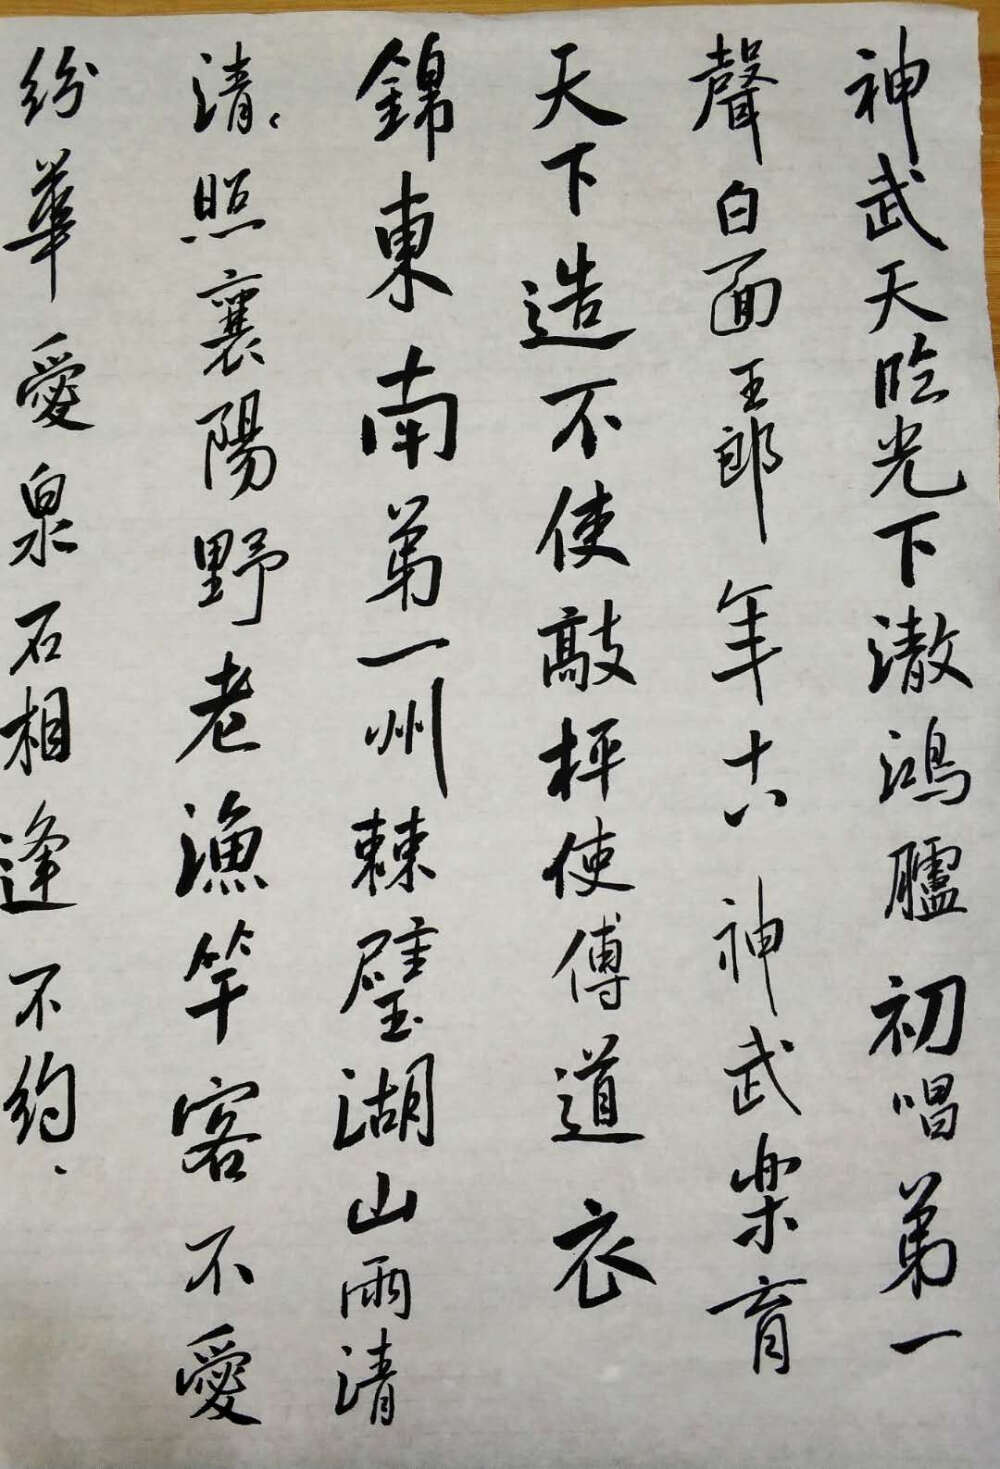 神武天臨光下澈鴻臚初唱苐一
聲白面王郎年十八神武樂育
天下造不使敲枰使傳道衣
錦東南苐一州棘璧湖山雨清
清〻照襄陽野老漁竿客不愛
紛華愛泉石相逢不約、